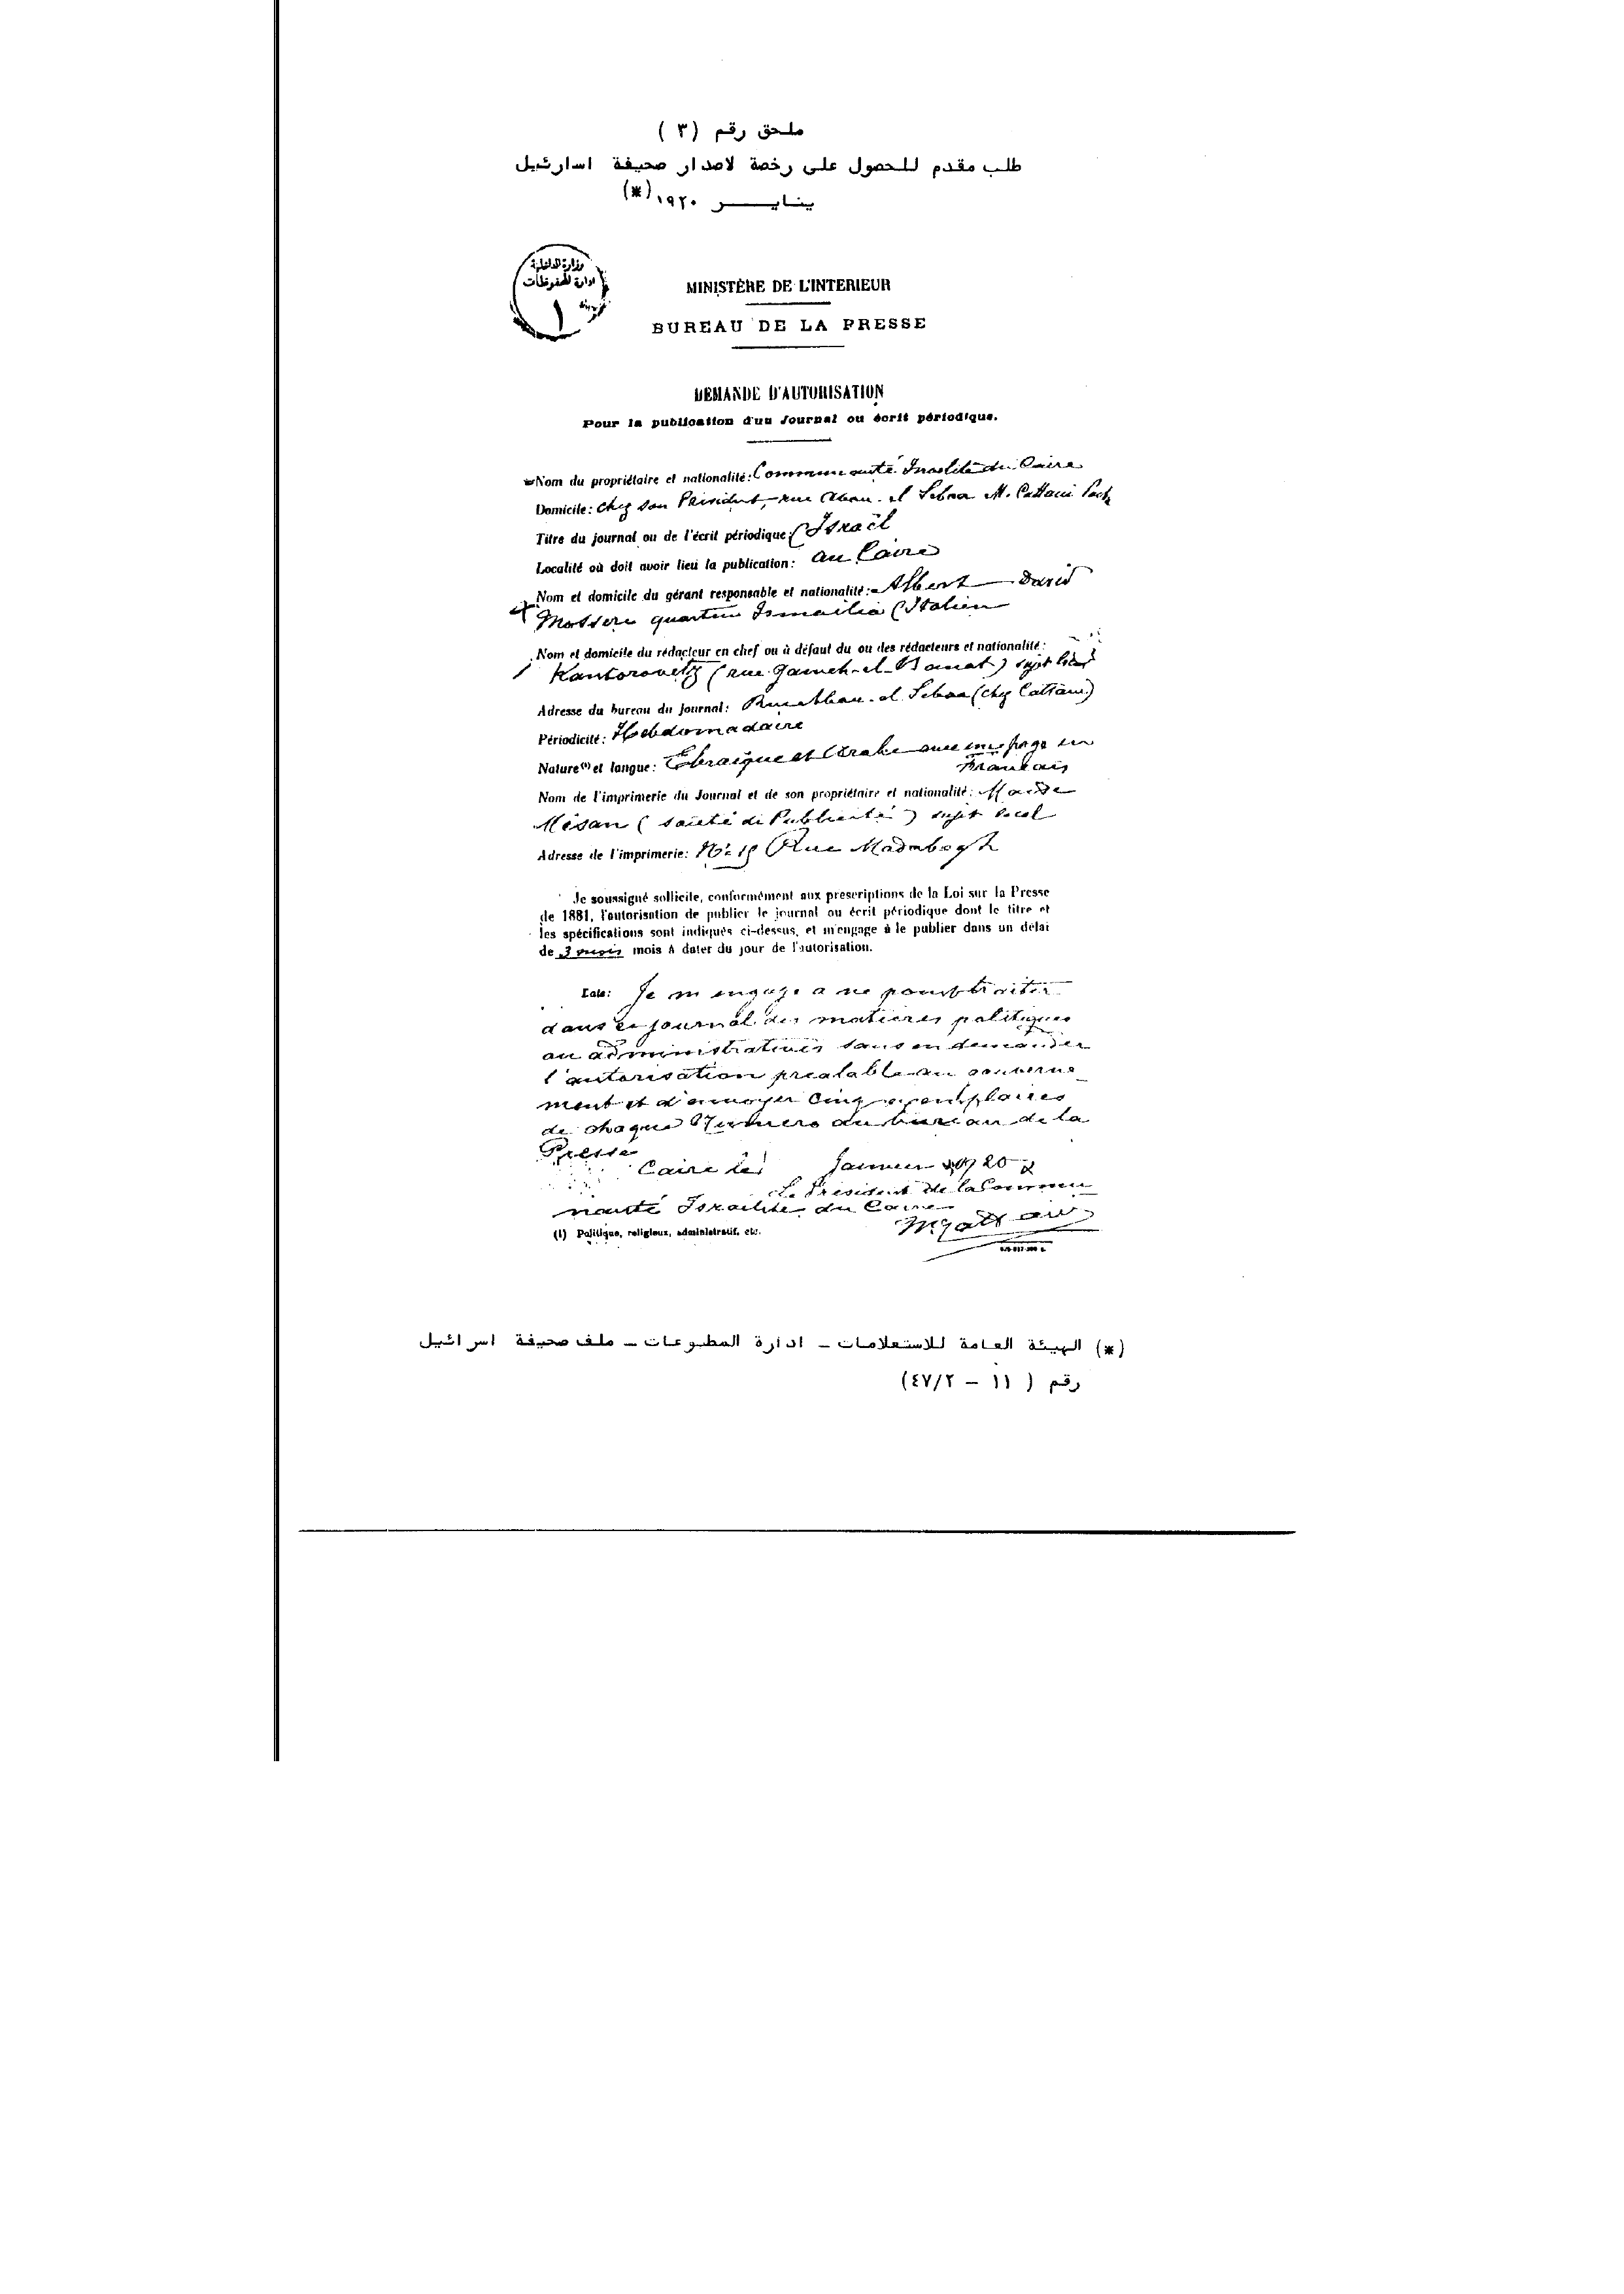 ملحق رقم (٣ )
طلب مقدم للحصول على رخصة لاصدار صحيفة اسارئيل
ينايـــــر ١٩٢٠(*)
وزارة الداخلية
ادارة المحفوظات
MINISTÈRE DE L'INTERIEUR
BUREAU DE LA PRESSE
DEMANDE D'AUTORISATION
Pour la publication d'un Journal ou écrit périodique.
Nom du propriétaire et nationalité: Communauté Israélite du Caire
Domicile: chez son Président, rue Abou-el Sebaa M. Cattaui Pach
Titre du journal ou de l'écrit périodique: Israël
Localité où doit avoir lieu la publication: au Caire
Nom et domicile du gérant responsable et nationalité: Albert David
Mosseri quartier Ismailia (Italien
Nom et domicile du rédacteur en chef ou à défaut du ou des rédacteurs et nationalité:
Kantorovitz (rue Gameh-el-Banat) sujet
Adresse du bureau du journal: Rue Abou-el Sebaa (chez Cattaui)
Périodicité: Hebdomadaire
Nature(1) et langue: Ebraique et Arabe avec une page en
Français
Nom de l'imprimerie du Journal et de son propriétaire et nationalité:
Mizan (Société de Publicité) sujet local
Adresse de l'imprimerie: Rue Madabegh
Je soussigné sollicite, conformément aux prescriptions de la Loi sur la Presse
de 1881, l'autorisation de publier le journal ou écrit périodique dont le titre et
les spécifications sont indiqués ci-dessus, et m'engage à le publier dans un délai
de 3 mois mois à dater du jour de l'autorisation.
Date: Je m'engage a ne point traiter
dans ce journal des matieres politiques
ou administratives sans en demander
l'autorisation prealable au gouverne
ment et d'envoyer cinq exemplaires
de chaque Numero au bureau de la
Presse
Caire le Janvier 1920
Le President de la Commu
nauté Israelite du Caire
(1) Politique, religieux, administratif, etc.
(*) الهيئة العامة للاستعلامات - ادارة المطبوعات - ملف صحيفة اسرائيل
رقم ( ١١ - ٤٧/٢)